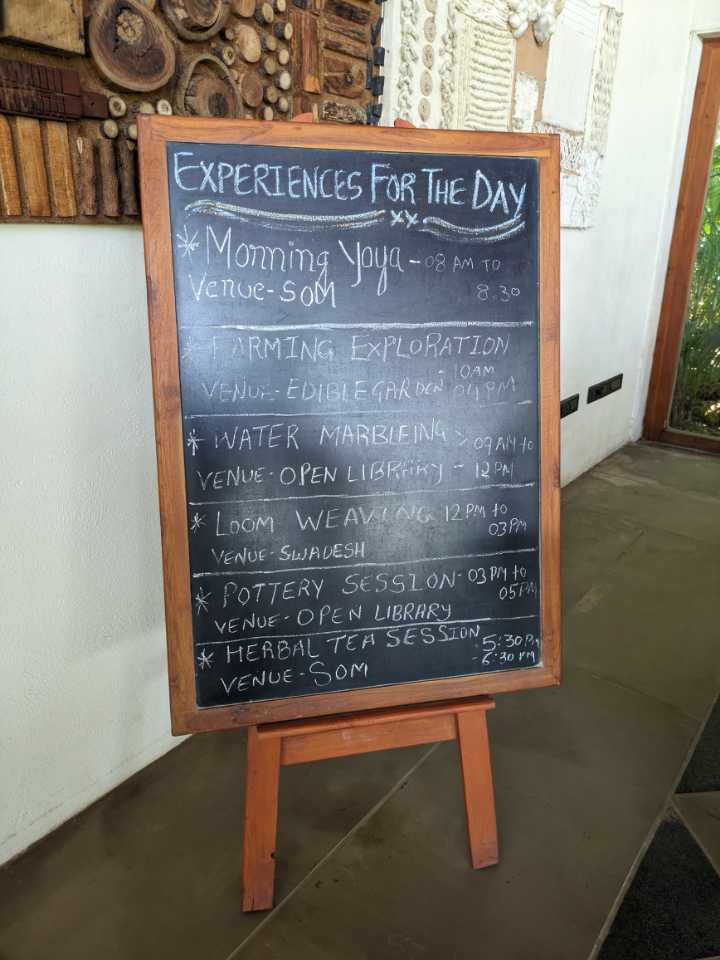 EXPERIENCES FOR THE DAY
xx
* Monning Yoya - 08 AM TO
Venue-SOM 8.30
* FARMING EXPLORATION
VENUE-EDIBLEGARDEN - 10AM 04PM
* WATER MARBLEING > 09AM to
VENUE-OPEN LIBRARY - 12PM
* LOOM WEAVING 12PM to
03PM
VENUE-SWADESH
* POTTERY SESSION-03PM to
05PM
VENUE-OPEN LIBRARY
* HERBAL TEA SESSION 5:30PM
- 6:30 PM
VENUE-SOM